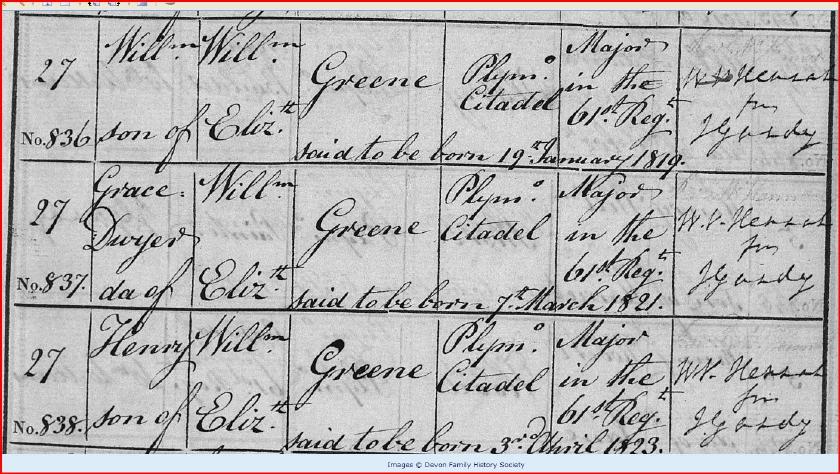 27 Willm Willm Greene Plymo. Citadel Major in the 61st Regt
No. 836 son of Elizth for
said to be born 19th January 1819.
27 Grace Dwyer Willm Greene Plymo. Citadel Major in the 61st Regt
No. 837. da of Elizth for
said to be born 7th March 1821.
27 Henry Willm Greene Plymo. Citadel Major in the 61st Regt
No. 838. son of Elizth for
said to be born 3rd April 1823.
Images © Devon Family History Society